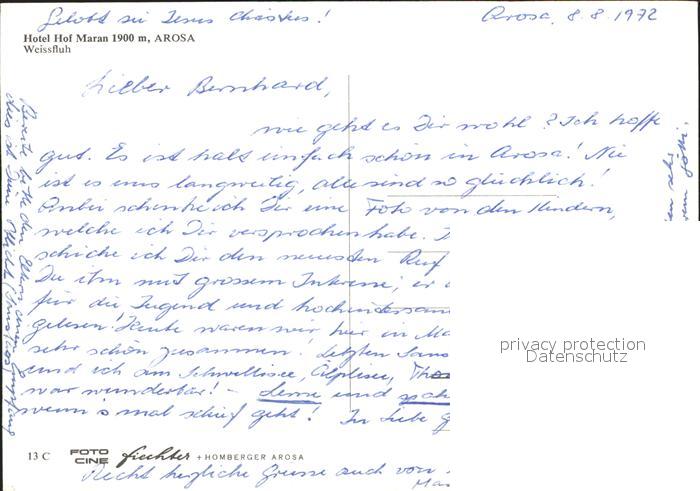 Gelobt sei Jesus Christus!
Arosa, 8.8.1972
Hotel Hof Maran 1900 m, AROSA
Weissfluh
Lieber Bernhard,
wie geht es Dir wohl? Ich hoffe
gut. Es ist halt einfach schön in Arosa! Nie
ist es uns langweilig, alle sind so glücklich!
Anbei schenke ich Dir eine Foto von den Kindern,
welche ich Dir versprochen habe.
schicke ich Dir den neuesten Ruf
Du ihn mit grossem Interesse, er
für die Jugend und hochinteressan
gelesen! Heute waren wir hier in Ma
sehr schön zusammen! Letzten Sams
und ich am Schwellisee, Älplisee,
war wunderbar! - Lerne und
wenn's mal schief geht! In Liebe
privacy protection
Datenschutz
13 C FOTO CINE fiechter + HOMBERGER AROSA
Recht herzliche Grüsse auch von